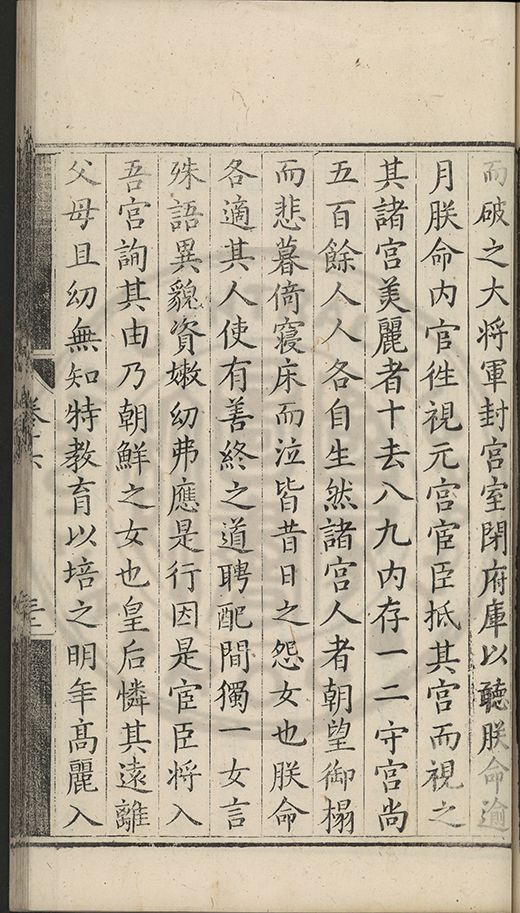 而破之大将軍封宮室閉府庫以聽朕命逾
月朕命内官徃視元宮宦臣抵其宮而視之
其諸宮美麗者十去八九内存一二守宮尚
五百餘人人各自生然諸宮人者朝望御榻
而悲暮倚寢床而泣皆昔日之怨女也朕命
各適其人使有善終之道聘配間獨一女言
殊語異貌資嫩幼弗應是行因是宦臣将入
吾宮詢其由乃朝鮮之女也皇后憐其遠離
父母且幼無知特教育以培之明年髙麗入
卷十六
三